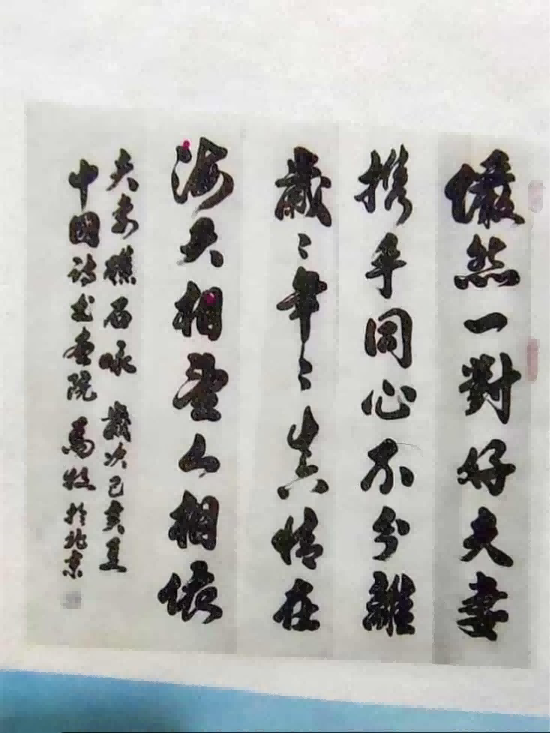 儼然一對好夫妻
携手同心不分離
歲〻年〻真情在
海天相望相依
夫妻礁石咏 歲次己亥夏
中國詩書畫院 馬牧 於北京